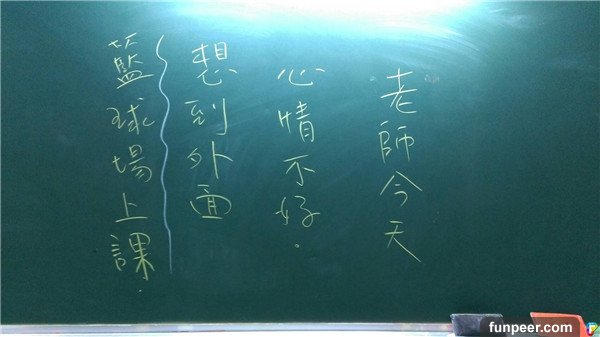 老師今天
心情不好.
想到外面
籃球場上課.
funpeer.com